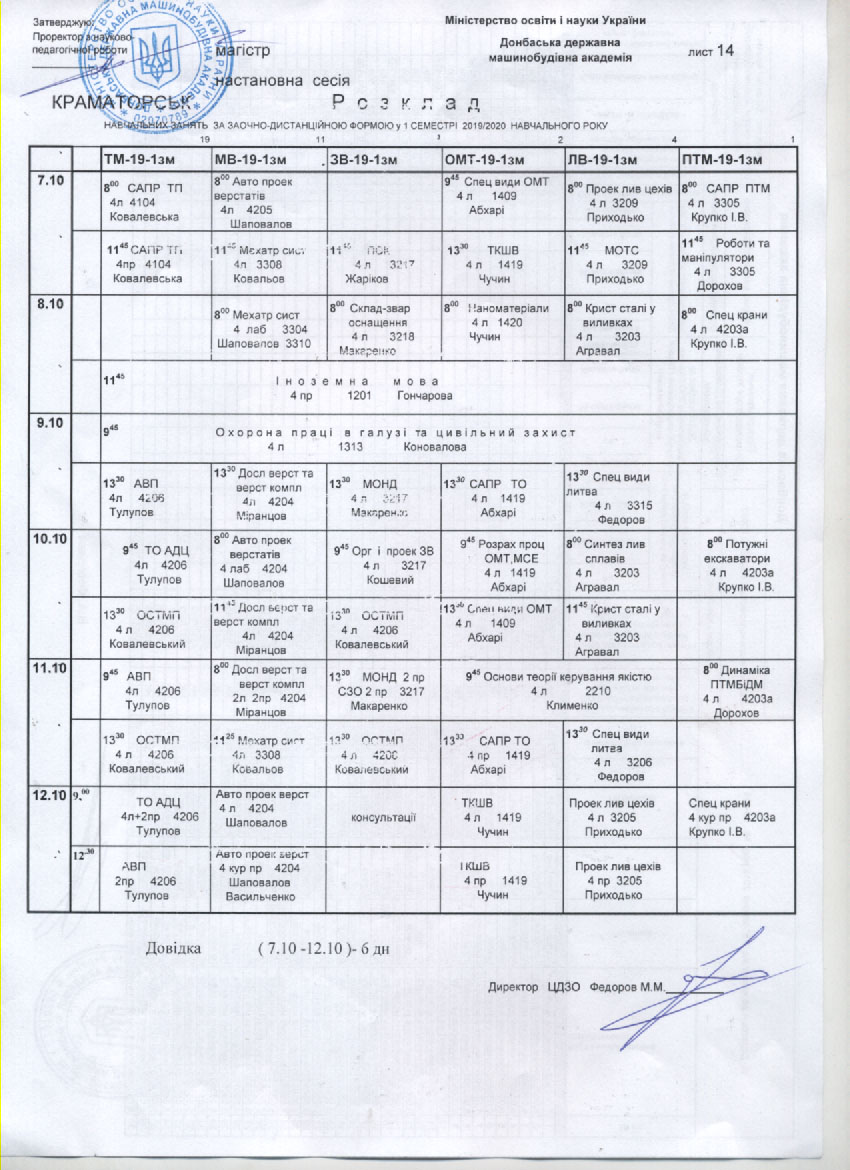 Затверджую
Проректор з науково-
педагогічної роботи
магістр
настановна сесія
КРАМАТОРСЬК
Міністерство освіти і науки України
Донбаська державна
машинобудівна академія
лист 14
Р о з к л а д
НАВЧАЛЬНИХ ЗАНЯТЬ ЗА ЗАОЧНО-ДИСТАНЦІЙНОЮ ФОРМОЮ у 1 СЕМЕСТРІ 2019/2020 НАВЧАЛЬНОГО РОКУ
19 11 3 2 4 1
ТМ-19-1зм МВ-19-1зм ЗВ-19-1зм ОМТ-19-1зм ЛВ-19-1зм ПТМ-19-1зм
7.10
8⁰⁰ САПР ТП
4л 4104
Ковалевська
8⁰⁰ Авто проек
верстатів
4л 4205
Шаповалов
9⁴⁵ Спец види ОМТ
4 л 1409
Абхарі
8⁰⁰ Проек лив цехів
4 л 3209
Приходько
8⁰⁰ САПР ПТМ
4 л 3305
Крупко І.В.
11⁴⁵ САПР ТП
4пр 4104
Ковалевська
Мехатр сист
4л 3308
Ковальов
4 л 3217
Жаріков
13³⁰ ТКШВ
4 л 1419
Чучин
11⁴⁵ МОТС
4 л 3209
Приходько
11⁴⁵ Роботи та
маніпулятори
4 л 3305
Дорохов
8.10
8⁰⁰ Мехатр сист
4 лаб 3304
Шаповалов 3310
8⁰⁰ Склад-звар
оснащення
4 л 3218
Макаренко
8⁰⁰ Наноматеріали
4 л 1420
Чучин
8⁰⁰ Крист сталі у
виливках
4 л 3203
Агравал
8⁰⁰ Спец крани
4 л 4203а
Крупко І.В.
11⁴⁵
І н о з е м н а м о в а
4 пр 1201 Гончарова
9.10
9⁴⁵ О х о р о н а п р а ц і в г а л у з і та ц и в і л ь н и й з а х и с т
4 л 1313 Коновалова
13³⁰ АВП
4л 4206
Тулупов
13³⁰ Досл верст та
верст компл
4л 4204
Міранцов
13³⁰ МОНД
4 л 3217
Макаренко
13³⁰ САПР ТО
4 л 1419
Абхарі
13³⁰ Спец види
литва
4 л 3315
Федоров
10.10
9⁴⁵ ТО АДЦ
4л 4206
Тулупов
8⁰⁰ Авто проек
верстатів
4 лаб 4204
Шаповалов
9⁴⁵ Орг і проек ЗВ
4 л 3217
Кошевий
9⁴⁵ Розрах проц
ОМТ,МСЕ
4 л 1419
Абхарі
8⁰⁰ Синтез лив
сплавів
4 л 3203
Агравал
8⁰⁰ Потужні
екскаватори
4 л 4203а
Крупко І.В.
13³⁰ ОСТМП
4 л 4206
Ковалевський
Досл верст та
верст компл
4л 4204
Міранцов
13³⁰ ОСТМП
4 л 4206
Ковалевський
13³⁰ Спец види ОМТ
4 л 1409
Абхарі
11⁴⁵ Крист сталі у
виливках
4 л 3203
Агравал
11.10
9⁴⁵ АВП
4л 4206
Тулупов
8⁰⁰ Досл верст та
верст компл
2л 2пр 4204
Міранцов
13³⁰ МОНД 2 пр
СЗО 2 пр 3217
Макаренко
9⁴⁵ Основи теорії керування якістю
4 л 2210
Клименко
8⁰⁰ Динаміка
ПТМБіДМ
4 л 4203а
Дорохов
13³⁰ ОСТМП
4 л 4206
Ковалевський
11²⁵ Мехатр сист
4л 3308
Ковальов
13³⁰ ОСТМП
4 л 4206
Ковалевський
САПР ТО
4 пр 1419
Абхарі
13³⁰ Спец види
литва
4 л 3206
Федоров
12.10 9.⁰⁰
ТО АДЦ
4л+2пр 4206
Тулупов
Авто проек верст
4 л 4204
Шаповалов
консультації
ТКШВ
4 л 1419
Чучин
Проек лив цехів
4 л 3205
Приходько
Спец крани
4 кур пр 4203а
Крупко І.В.
12.³⁰
АВП
2пр 4206
Тулупов
Авто проек верст
4 кур пр 4204
Шаповалов
Васильченко
ТКШВ
4 пр 1419
Чучин
Проек лив цехів
4 пр 3205
Приходько
Довідка ( 7.10 -12.10 )- 6 дн
Директор ЦДЗО Федоров М.М.